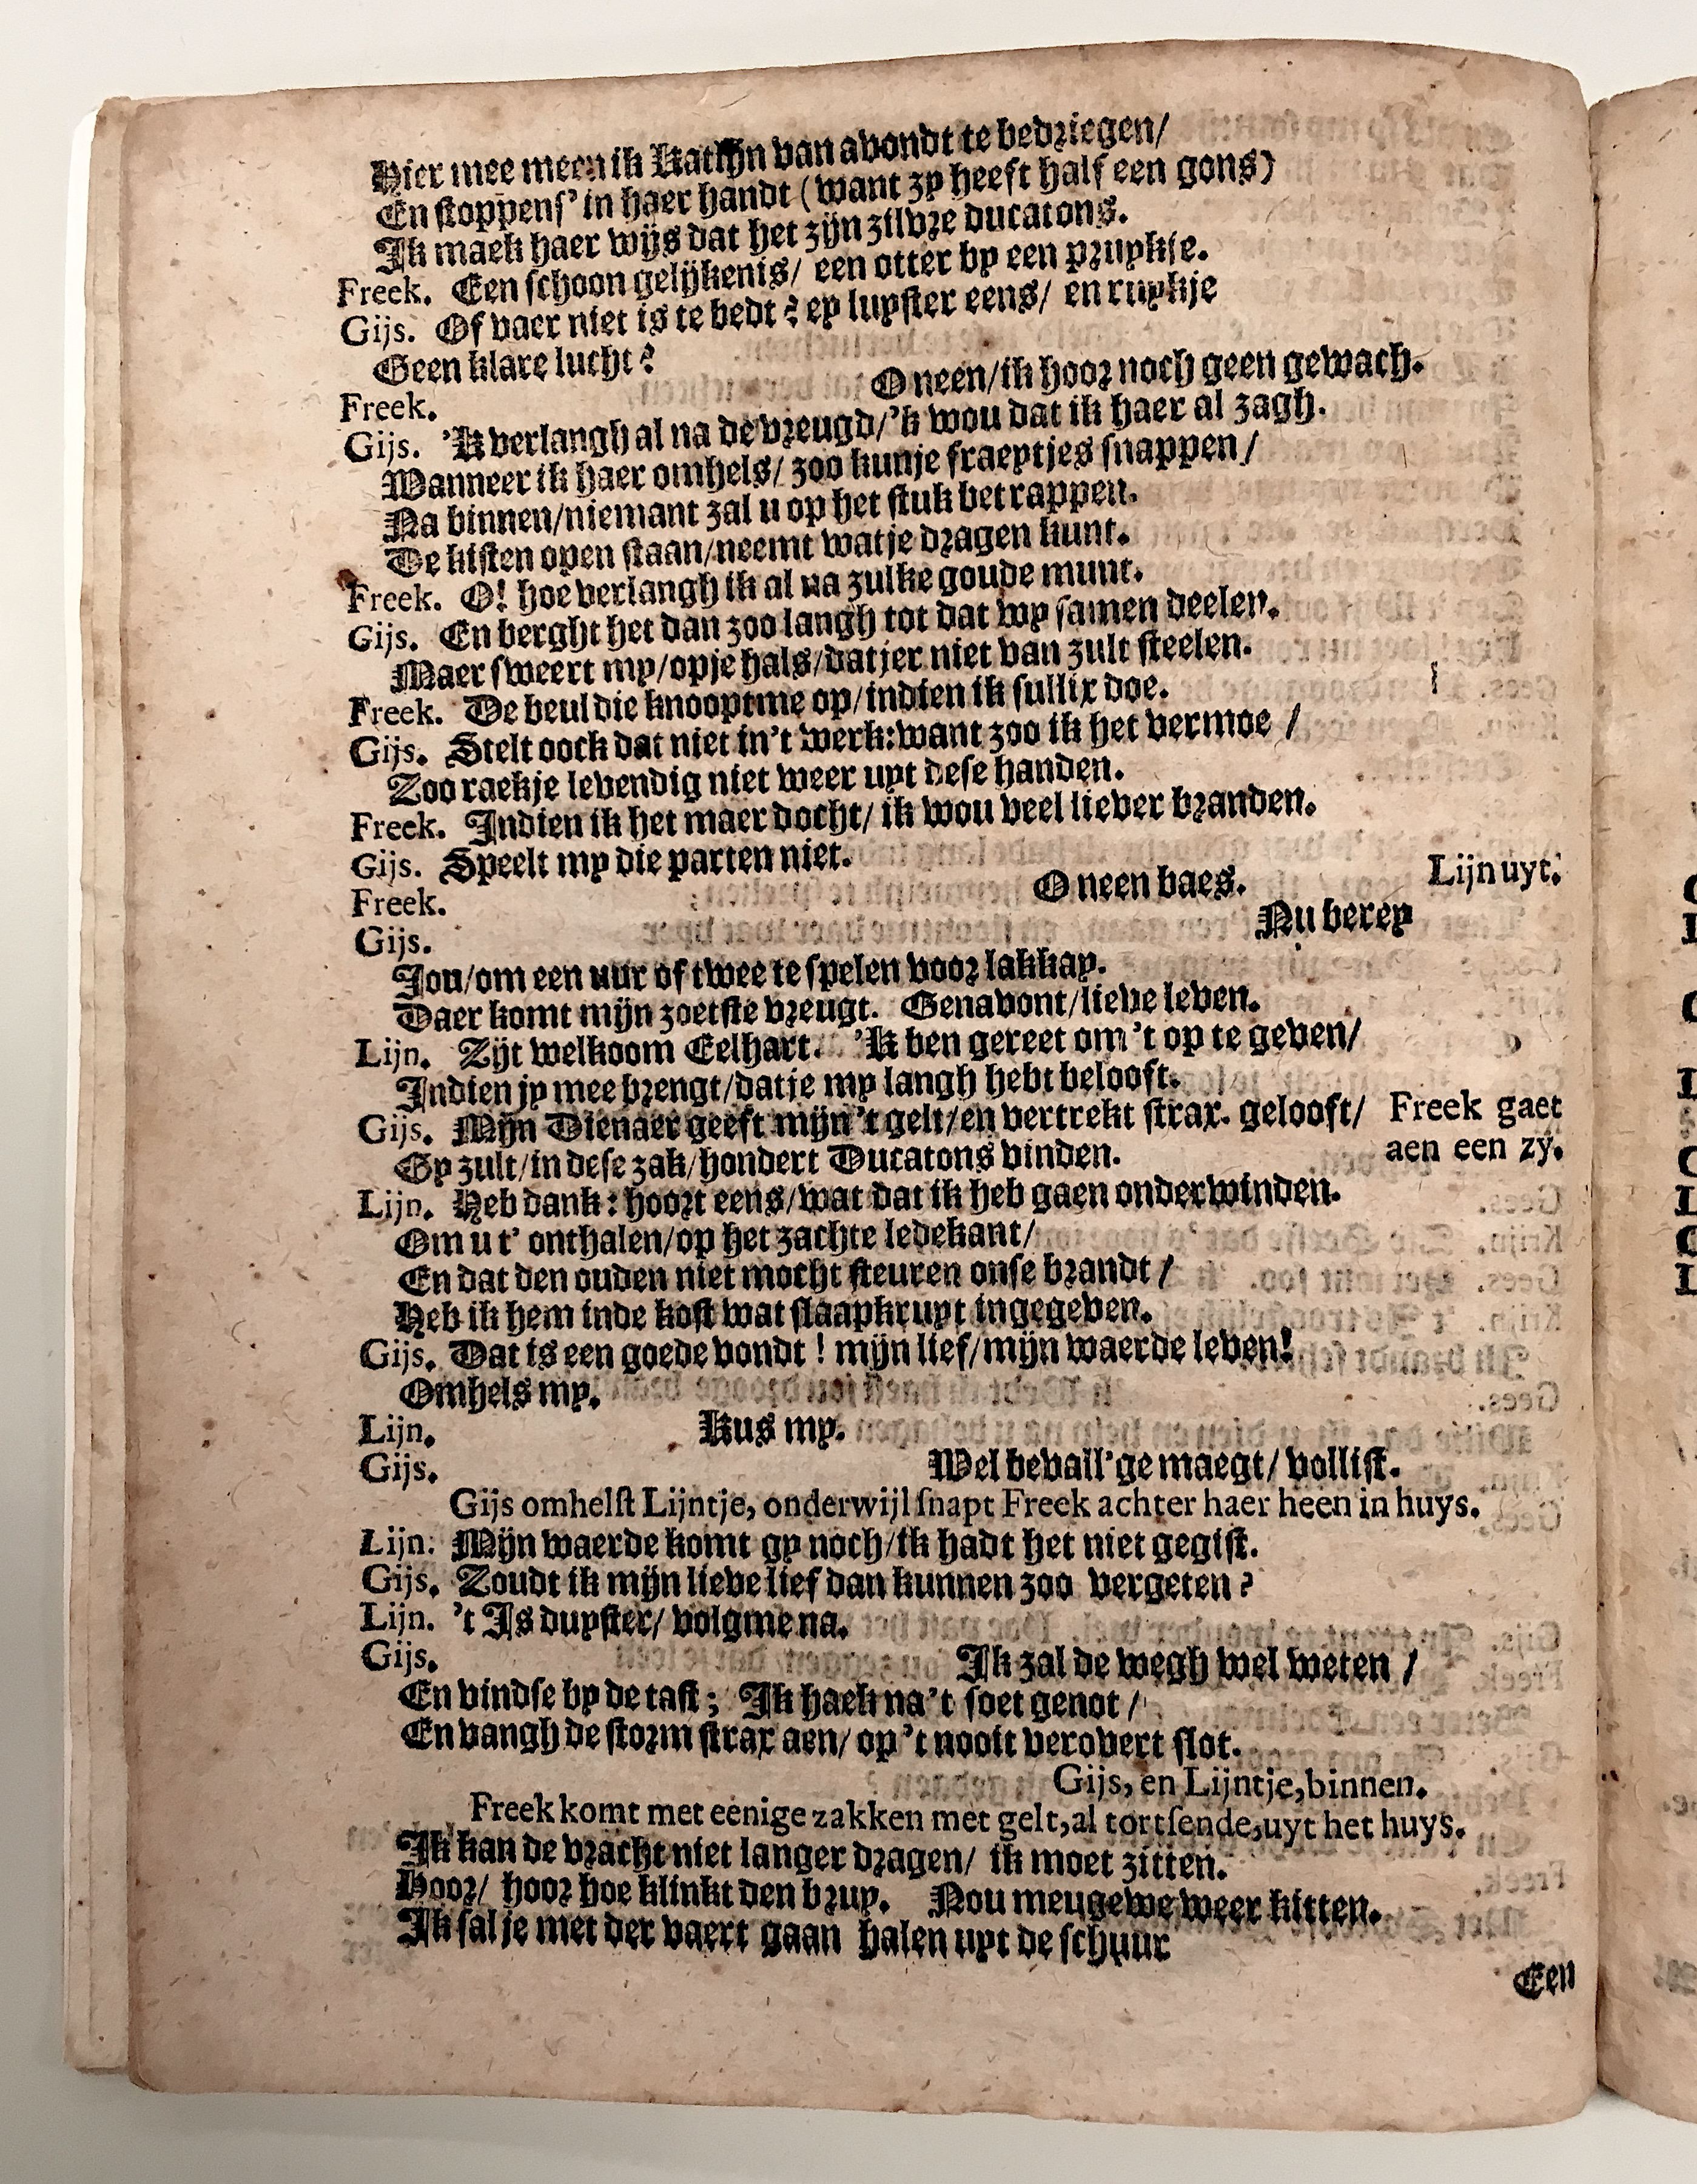 Hier mee meen ik Katlijn van avondt te bedriegen/
En stoppens' in haer handt (want zy heeft half een gons)
Ik maek haer wijs dat het zijn zilvre ducatons.
Freek. Een schoon gelijkenis/ een otter by een pruykje.
Gijs. Of vaer niet is te bedt? ey luyster eens/ en ruykje
Geen klare lucht?
Freek. O neen/ik hoor noch geen gewach.
Gijs. 'K verlangh al na de vreugd/'k wou dat ik haer al zagh.
Wanneer ik haer omhels/ zoo kunje fraeytjes snappen/
Na binnen/niemant zal u op het stuk betrappen.
De kisten open staan/neemt watje dragen kunt.
Freek. O! hoe verlangh ik al na zulke goude munt.
Gijs. En berght het dan zoo langh tot dat wy samen deelen.
Maer sweert my/opje hals/datjer niet van zult steelen.
Freek. De beul die knooptme op/indien ik sullix doe.
Gijs. Stelt oock dat niet in't werk:want zoo ik het vermoe /
Zoo raekje levendig niet weer uyt dese handen.
Freek. Indien ik het maer docht/ ik wou veel liever branden.
Gijs. Speelt my die parten niet.
Freek. O neen baes. Lijn uyt.
Gijs. Nu berey
Jou/om een uur of twee te spelen voor lakkay.
Daer komt mijn zoetste vreugt. Genavont/lieve leven.
Lijn. Zijt welkoom Eelhart. 'K ben gereet om 't op te geven/
Indien jy mee brengt/datje my langh hebt belooft.
Gijs. Mijn Dienaer geeft mijn 't gelt/en vertrekt strax. gelooft/ Freek gaet
Gy zult/in dese zak/hondert Ducatons vinden. aen een zy.
Lijn. Heb dank: hoort eens/wat dat ik heb gaen onderwinden.
Om u t' onthalen/op het zachte ledekant/
En dat den ouden niet mocht steuren onse brandt /
Heb ik hem inde kost wat slaapkruyt ingegeven.
Gijs. Dat is een goede vondt ! mijn lief/mijn waerde leven!
Omhels my.
Lijn. Kus my.
Gijs. Wel bevall'ge maegt/ vollist.
Gijs omhelst Lijntje, onderwijl snapt Freek achter haer heen in huys.
Lijn. Mijn waerde komt gy noch/ik hadt het niet gegist.
Gijs. Zoudt ik mijn lieve lief dan kunnen zoo vergeten?
Lijn. 't Is duyster/ volgme na.
Gijs. Ik zal de wegh wel weten /
En vindse by de tast; Ik haek na't soet genot /
En vangh de storm strax aen/ op 't nooit verovert slot.
Gijs, en Lijntje, binnen.
Freek komt met eenige zakken met gelt, al tortsende, uyt het huys.
Ik kan de vracht niet langer dragen/ ik moet zitten.
Hoor/ hoor hoe klinkt den bruy. Nou meugewe weer kitten.
Ik sal je met der vaert gaan halen uyt de schuur
Een